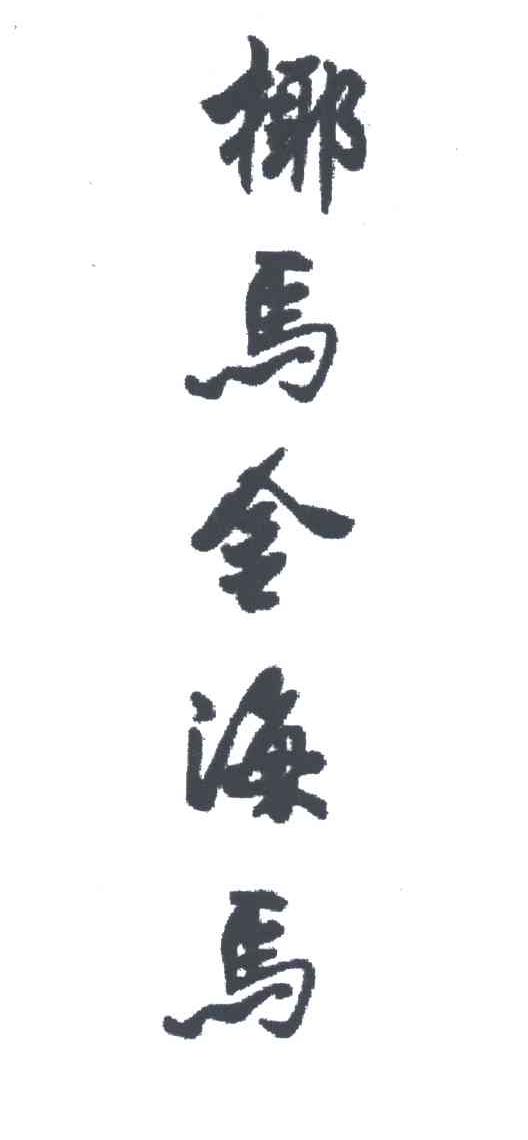 椰馬金海馬